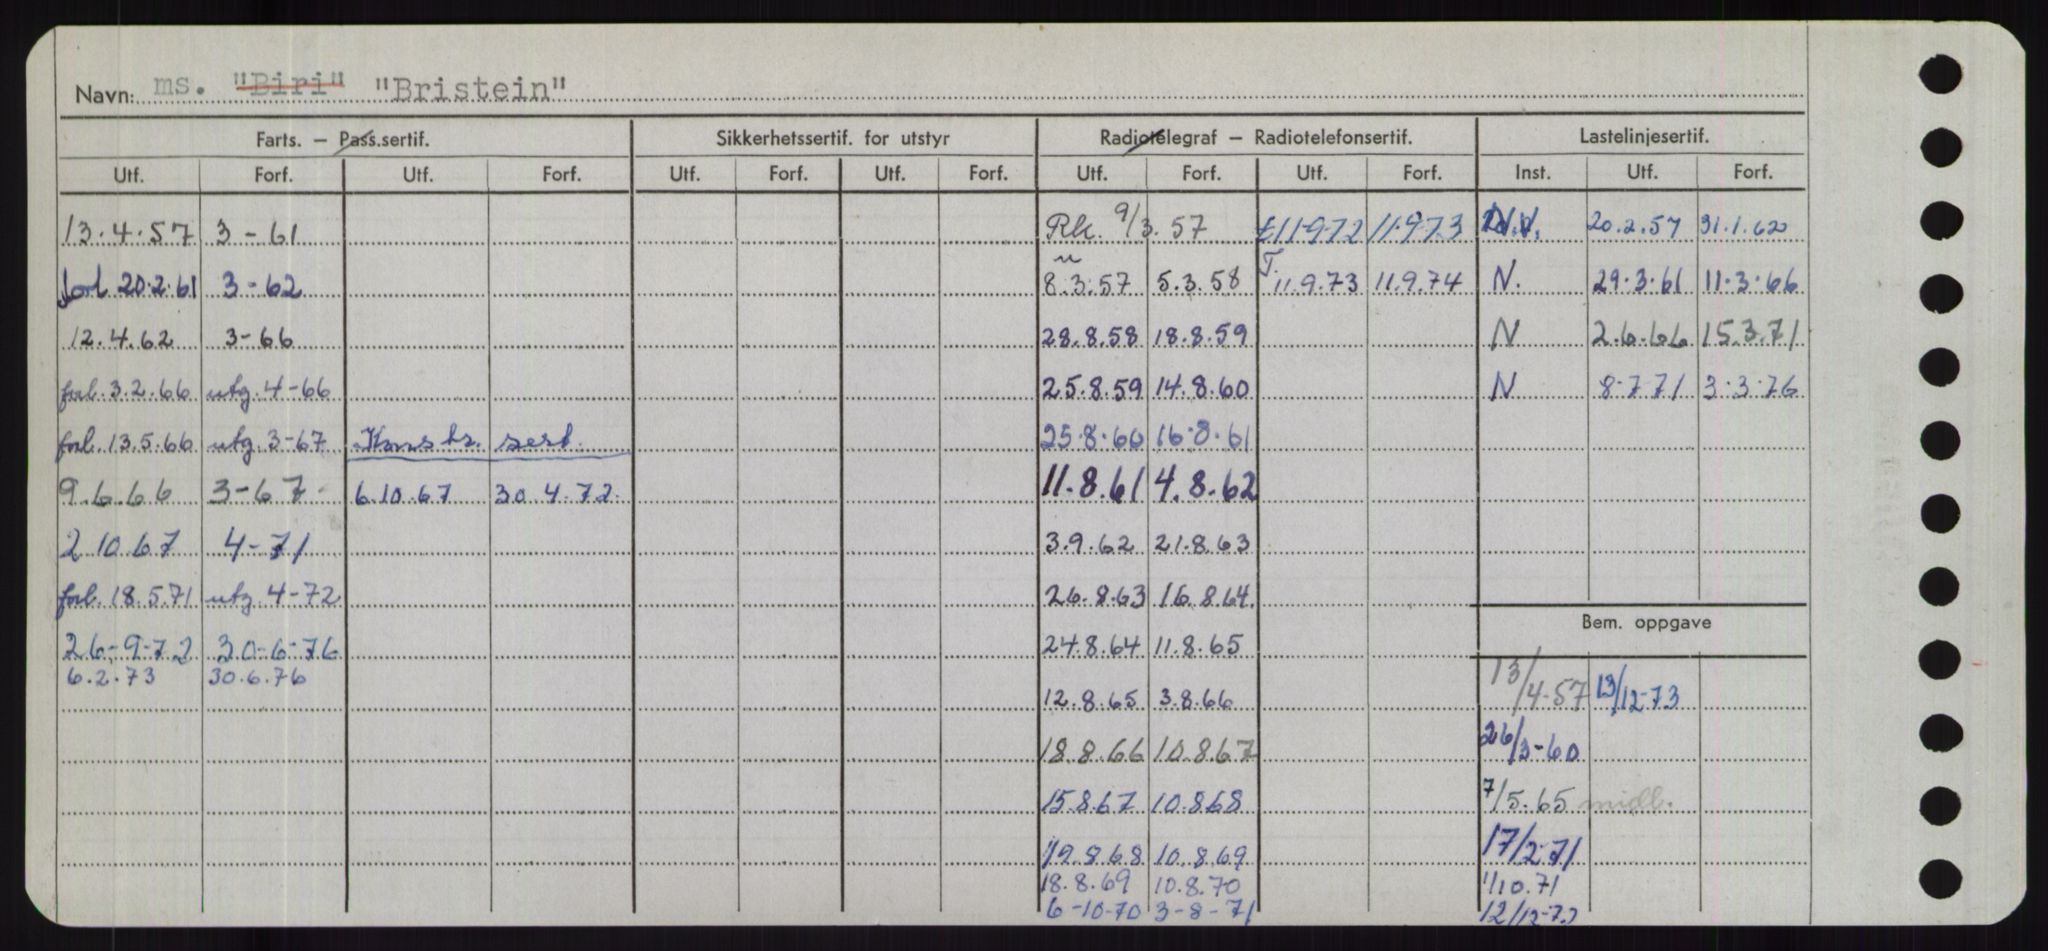 Navn: ms. "Biri" "Bristein"
Farts. — Pass.sertif. Sikkerhetssertif. for utstyr Radiotelegraf — Radiotelefonsertif. Lastelinjesertif.
Utf. Forf. Utf. Forf. Utf. Forf. Utf. Forf. Utf. Forf. Utf. Forf. Inst. Utf. Forf.
13.4.57 3-61 Rk. 9/3.57 11.9.72 11.9.73 N.V. 20.2.57 31.1.62
forl 20.2.61 3-62 8.3.57 5.3.58 T. 11.9.73 11.9.74 N. 29.3.61 11.3.66
12.4.62 3-66 28.8.58 18.8.59 N 2.6.66 15.3.71
forl. 3.2.66 utg. 4-66 25.8.59 14.8.60 N 8.7.71 3.3.76
forl. 13.5.66 utg. 3-67 Konstr. sert. 25.8.60 16.8.61
9.6.66 3-67 6.10.67 30.4.72. 11.8.61 4.8.62
2.10.67 4-71 3.9.62 21.8.63
forl. 18.5.71 utg. 4-72 26.8.63 16.8.64.
Bem. oppgave
26-9-72 30-6-76 24.8.64 11.8.65
6.2.73 30.6.76
12.8.65 3.8.66 13/4-57 13/12-73
18.8.66 10.8.67 26/3-60
15.8.67 10.8.68 7/5.65 midl.
19.8.68 10.8.69 17/2-71
18.8.69 10.8.70 1/10.71
6-10-70 3-8-71 12/12-72